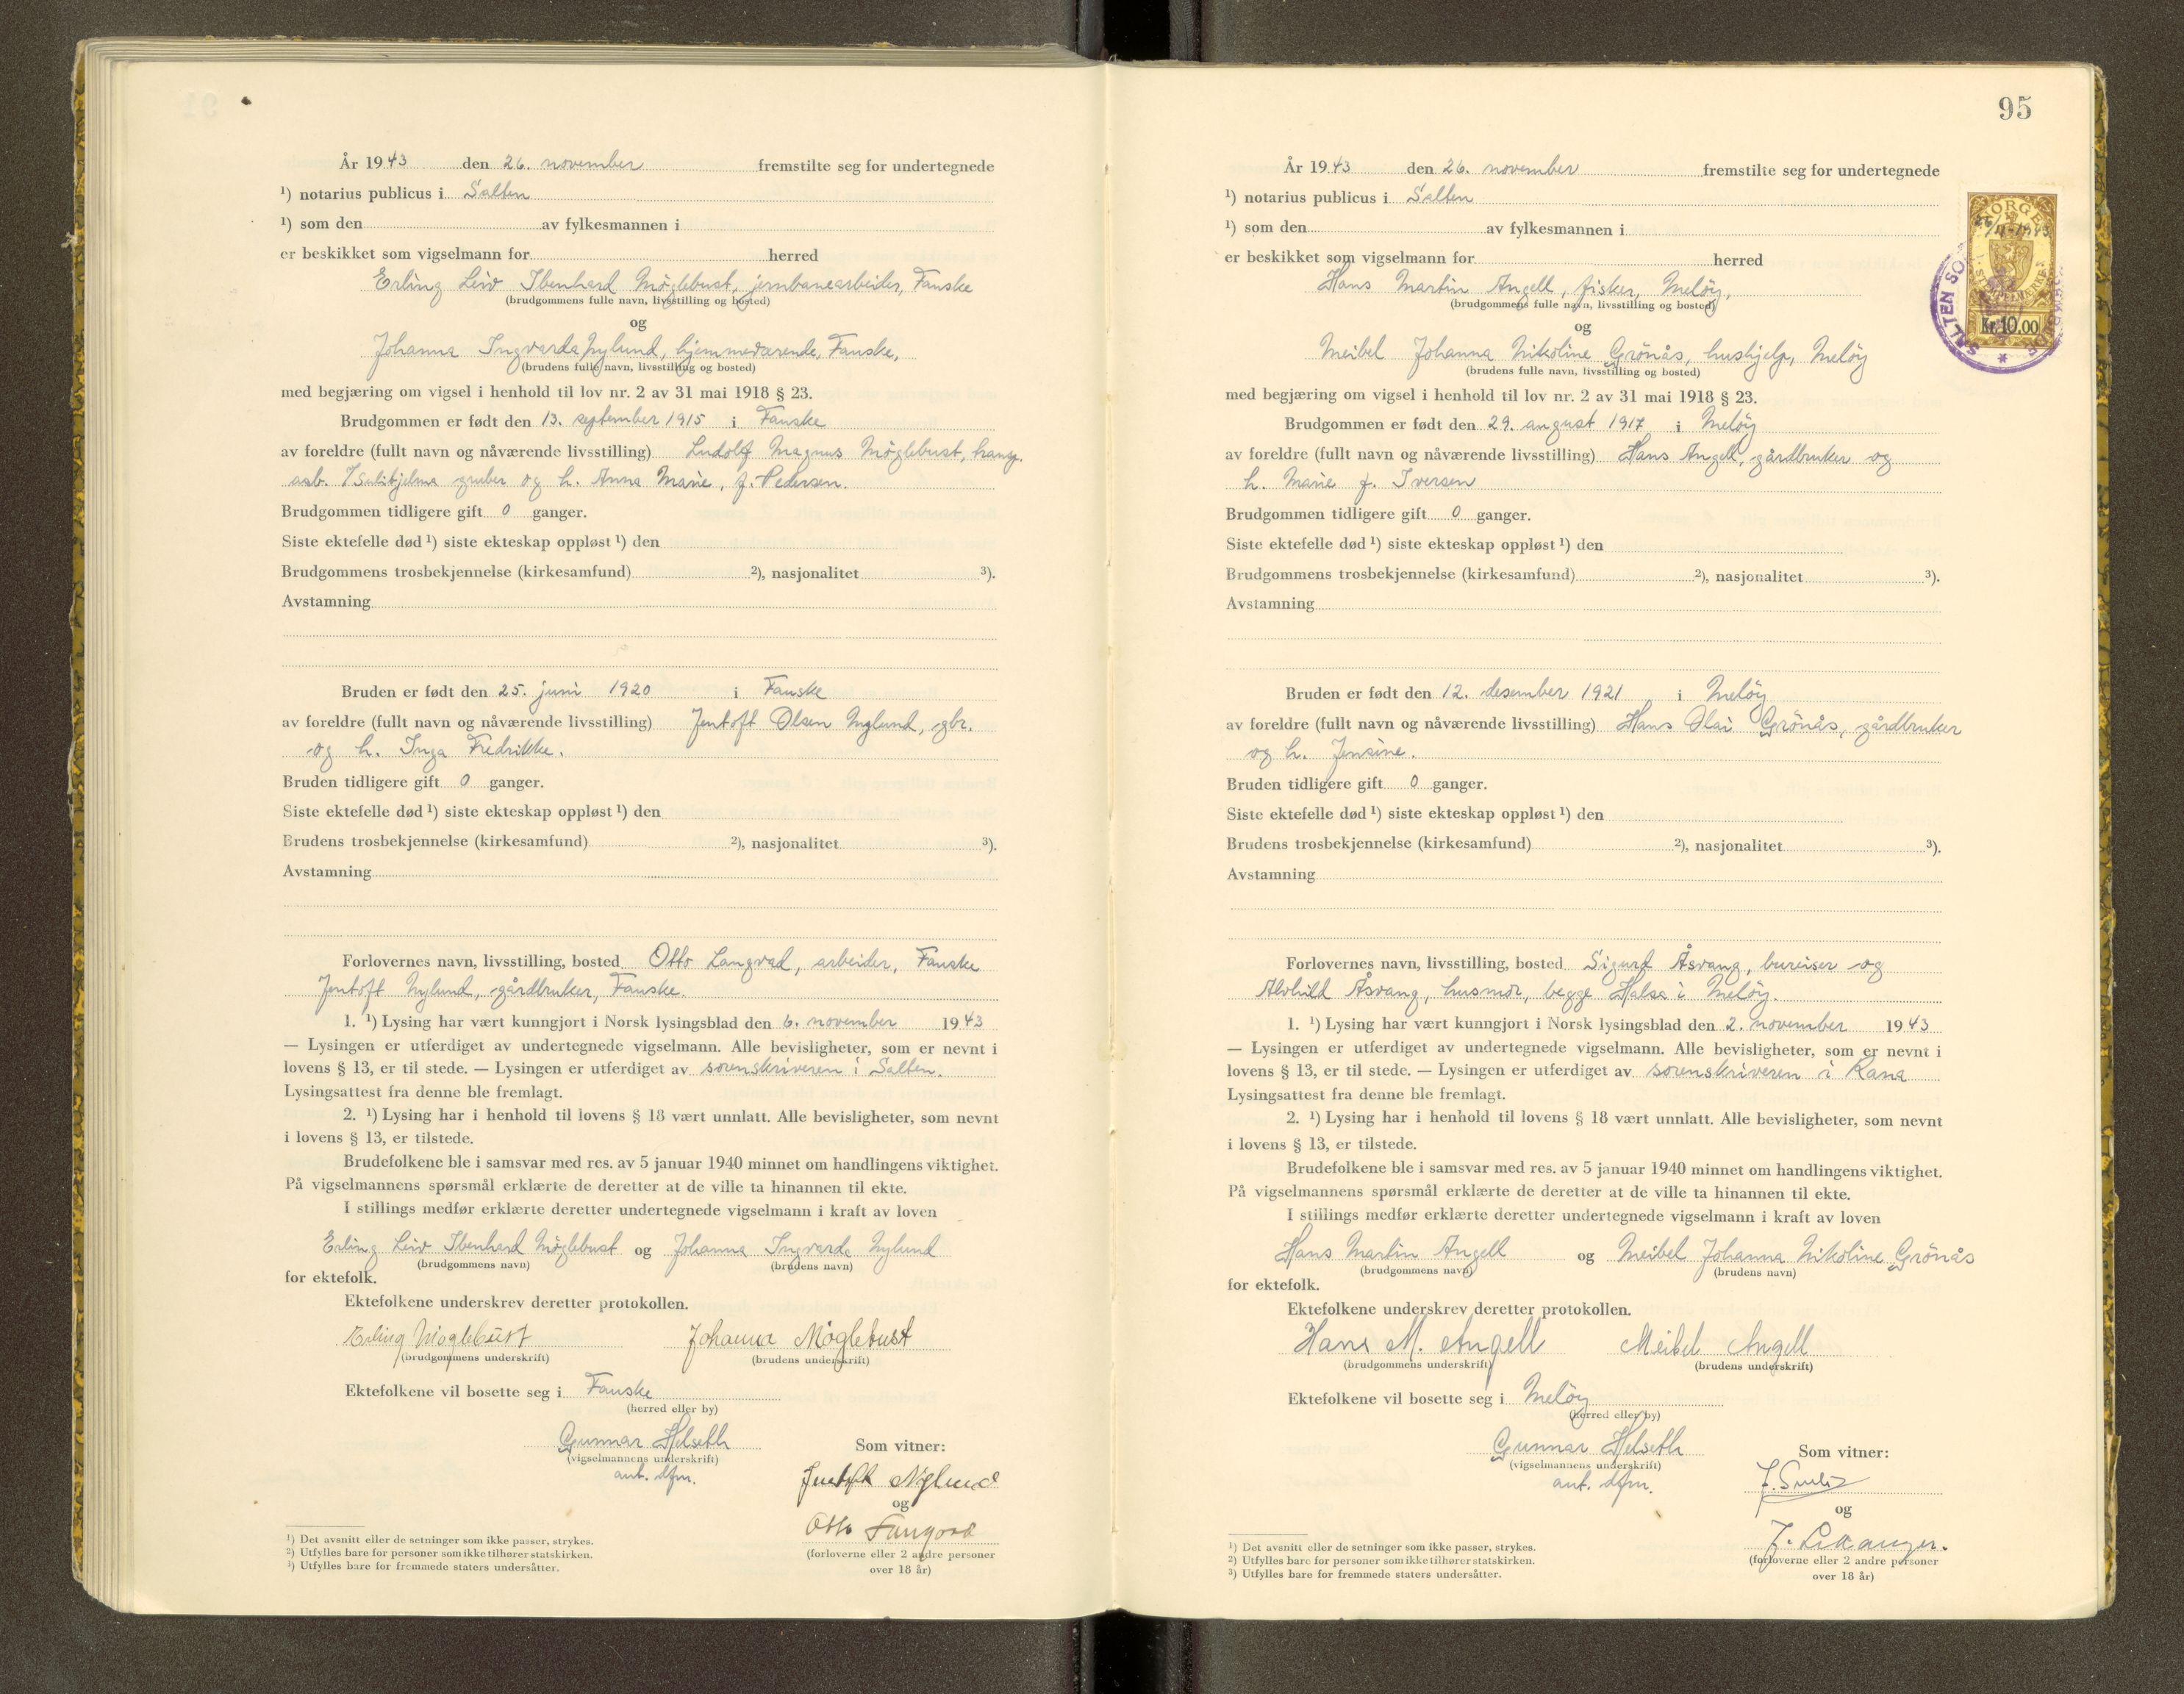 År 1943 den 26. november fremstilte seg for undertegnede
¹) notarius publicus i Salten
¹) som den av fylkesmannen i
er beskikket som vigselmann for herred
Erling Leiv Ibenhard Möglebust, jernbanearbeider, Fauske
(brudgommens fulle navn, livsstilling og bosted)
og
Johanna Ingvarda Nylund, hjemmeværende, Fauske,
(brudens fulle navn, livsstilling og bosted)
med begjæring om vigsel i henhold til lov nr. 2 av 31 mai 1918 § 23.
Brudgommen er født den 13. september 1915 i Fauske
av foreldre (fullt navn og nåværende livsstilling) Ludolf Magnus Möglebust,
arb. Sulitjelma gruber og h. Anna Marie, f. Pedersen.
Brudgommen tidligere gift 0 ganger.
Siste ektefelle død ¹) siste ekteskap oppløst ¹) den
Brudgommens trosbekjennelse (kirkesamfund) ²), nasjonalitet ³).
Avstamning
Bruden er født den 25. juni 1920 i Fauske
av foreldre (fullt navn og nåværende livsstilling) Jentoft Olsen Nylund, gbr.
og h. Inga Fredrikke.
Bruden tidligere gift 0 ganger.
Siste ektefelle død ¹) siste ekteskap oppløst ¹) den
Brudens trosbekjennelse (kirkesamfund) ²), nasjonalitet ³).
Avstamning
Forlovernes navn, livsstilling, bosted Otto Langvad, arbeider, Fauske
Jentoft Nylund, gårdbruker, Fauske.
1. ¹) Lysing har vært kunngjort i Norsk lysingsblad den 6. november 1943
— Lysingen er utferdiget av undertegnede vigselmann. Alle bevisligheter, som er nevnt i
lovens § 13, er til stede. — Lysingen er utferdiget av sorenskriveren i Salten.
Lysingsattest fra denne ble fremlagt.
2. ¹) Lysing har i henhold til lovens § 18 vært unnlatt. Alle bevisligheter, som nevnt
i lovens § 13, er tilstede.
Brudefolkene ble i samsvar med res. av 5 januar 1940 minnet om handlingens viktighet.
På vigselmannens spørsmål erklærte de deretter at de ville ta hinannen til ekte.
I stillings medfør erklærte deretter undertegnede vigselmann i kraft av loven
Erling Leiv Ibenhard Möglebust og Johanna Ingvarda Nylund
(brudgommens navn) (brudens navn)
for ektefolk.
Ektefolkene underskrev deretter protokollen.
Erling Möglebust Johanna Möglebust
(brudgommens underskrift) (brudens underskrift)
Ektefolkene vil bosette seg i Fauske
(herred eller by)
Gunnar Helseth Som vitner:
(vigselmannens underskrift)
aut. dfm. Jentoft Nylund
og
Otto Langvad
(forloverne eller 2 andre personer
over 18 år)
¹) Det avsnitt eller de setninger som ikke passer, strykes.
²) Utfylles bare for personer som ikke tilhører statskirken.
³) Utfylles bare for fremmede staters undersåtter.
95
År 1943 den 26. november fremstilte seg for undertegnede
¹) notarius publicus i Salten
¹) som den av fylkesmannen i
er beskikket som vigselmann for herred
NORGE
26/11-1943
STEMPELMERKE
Kr. 10.00
SALTEN SO
Hans Martin Angell, fisker, Melöy,
(brudgommens fulle navn, livsstilling og bosted)
og
Meibel Johanna Nikoline Grönås, hushjelp, Melöy
(brudens fulle navn, livsstilling og bosted)
med begjæring om vigsel i henhold til lov nr. 2 av 31 mai 1918 § 23.
Brudgommen er født den 29. august 1917 i Melöy
av foreldre (fullt navn og nåværende livsstilling) Hans Angell, gårdbruker og
h. Marie f. Iversen
Brudgommen tidligere gift 0 ganger.
Siste ektefelle død ¹) siste ekteskap oppløst ¹) den
Brudgommens trosbekjennelse (kirkesamfund) ²), nasjonalitet ³).
Avstamning
Bruden er født den 12. desember 1921 i Melöy
av foreldre (fullt navn og nåværende livsstilling) Hans Olai Grönås, gårdbruker
og h. Jensine.
Bruden tidligere gift 0 ganger.
Siste ektefelle død ¹) siste ekteskap oppløst ¹) den
Brudens trosbekjennelse (kirkesamfund) ²), nasjonalitet ³).
Avstamning
Forlovernes navn, livsstilling, bosted Sigurd Åsvang, bureiser og
Alvhild Åsvang, husmor, begge Halsa i Melöy.
1. ¹) Lysing har vært kunngjort i Norsk lysingsblad den 2. november 1943
— Lysingen er utferdiget av undertegnede vigselmann. Alle bevisligheter, som er nevnt i
lovens § 13, er til stede. — Lysingen er utferdiget av sorenskriveren i Rana
Lysingsattest fra denne ble fremlagt.
2. ¹) Lysing har i henhold til lovens § 18 vært unnlatt. Alle bevisligheter, som nevnt
i lovens § 13, er tilstede.
Brudefolkene ble i samsvar med res. av 5 januar 1940 minnet om handlingens viktighet.
På vigselmannens spørsmål erklærte de deretter at de ville ta hinannen til ekte.
I stillings medfør erklærte deretter undertegnede vigselmann i kraft av loven
Hans Martin Angell og Meibel Johanna Nikoline Grönås
(brudgommens navn) (brudens navn)
for ektefolk.
Ektefolkene underskrev deretter protokollen.
Hans M. Angell Meibel Angell
(brudgommens underskrift) (brudens underskrift)
Ektefolkene vil bosette seg i Melöy
(herred eller by)
Gunnar Helseth Som vitner:
(vigselmannens underskrift)
aut. dfm.
og
(forloverne eller 2 andre personer
over 18 år)
¹) Det avsnitt eller de setninger som ikke passer, strykes.
²) Utfylles bare for personer som ikke tilhører statskirken.
³) Utfylles bare for fremmede staters undersåtter.